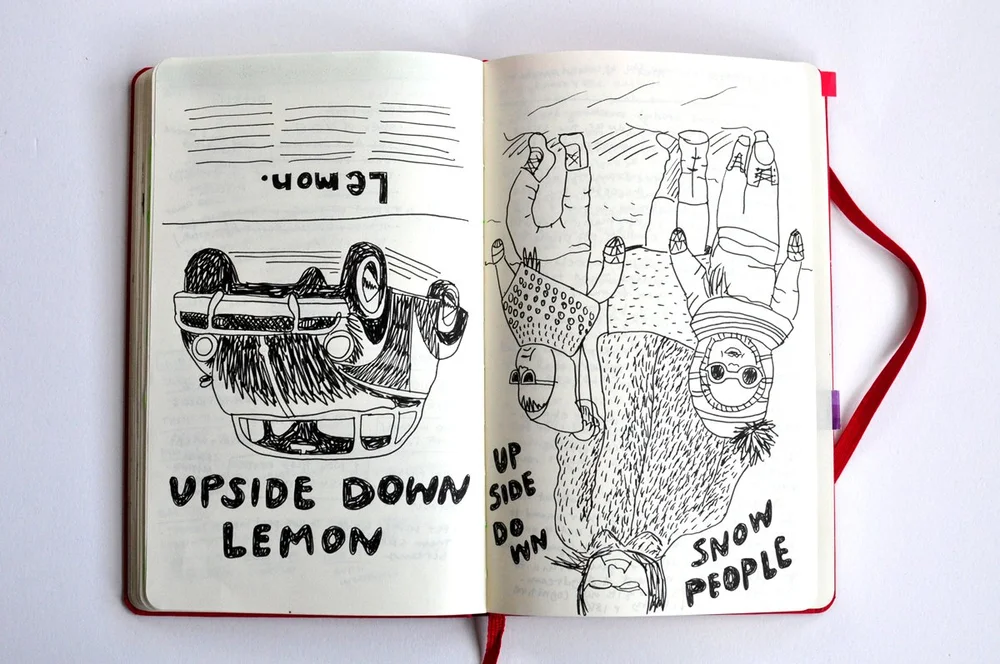 Lemon.
UPSIDE DOWN
LEMON
UP
SIDE
DO
WN
SNOW
PEOPLE